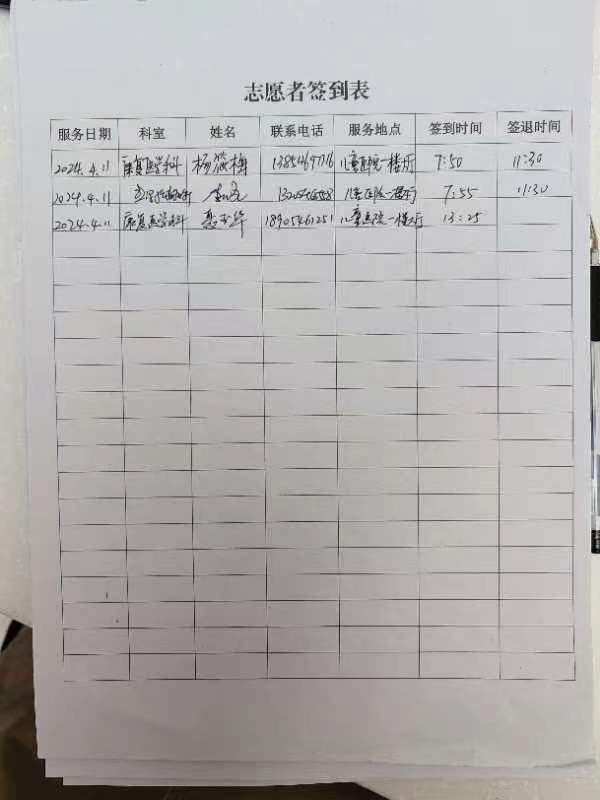 志愿者签到表
服务日期 科室 姓名 联系电话 服务地点 签到时间 签退时间
2024.4.11 康复医学科 杨筱梅 儿童医院一楼大厅 7:50 11:30
2024.4.11 儿童医院一楼大厅 7:55 11:30
2024.4.11 康复医学科 18905461251 儿童医院一楼大厅 13:25